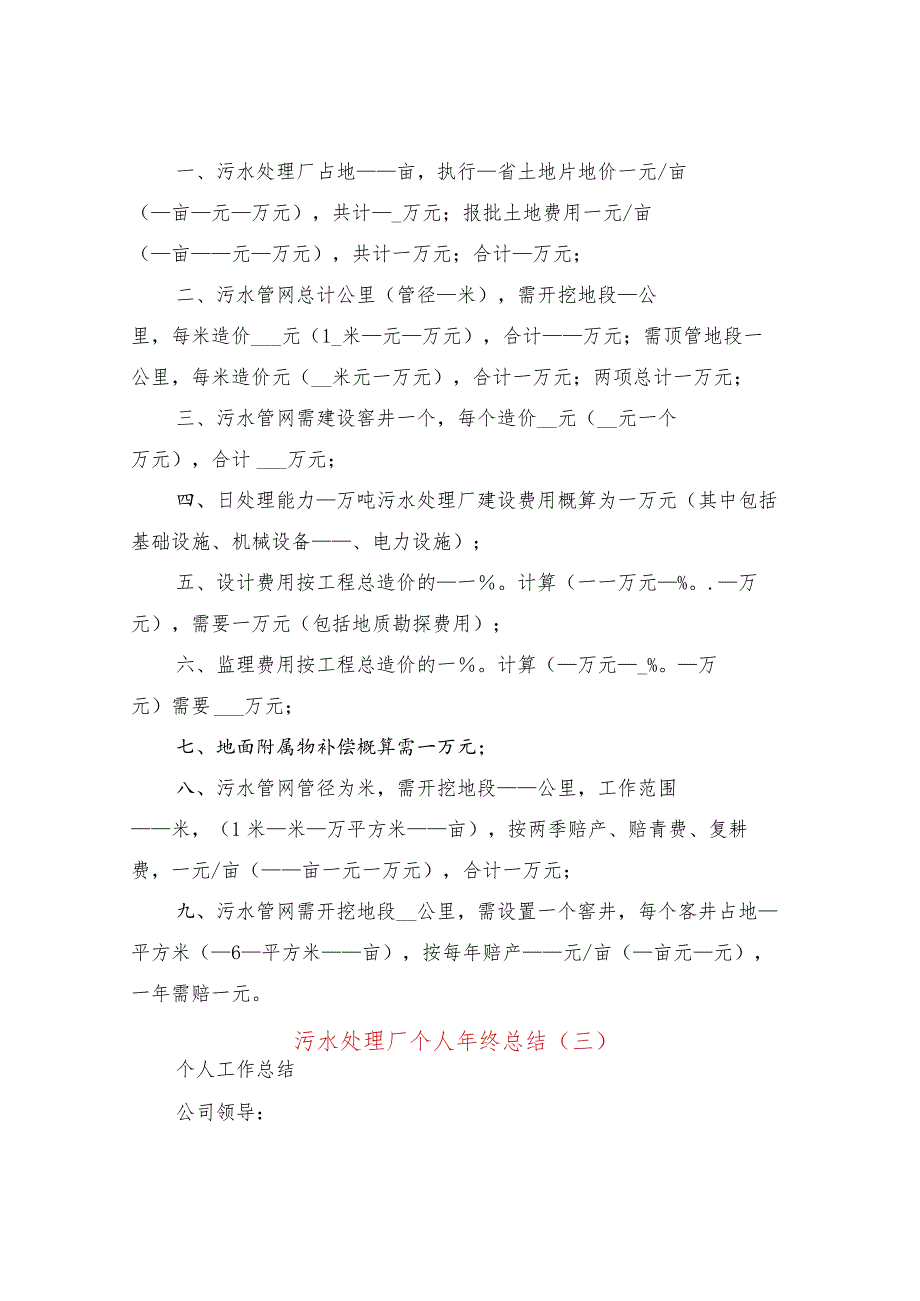 一、污水处理厂占地——亩，执行—省土地片地价一元/亩
（—亩—元—万元），共计—_万元；报批土地费用一元/亩
（—亩——元—万元），共计一万元；合计—万元；
二、污水管网总计公里（管径—米），需开挖地段—公
里，每米造价___元（1_米—元—万元），合计——万元；需顶管地段一
公里，每米造价元（__米元一万元），合计一万元；两项总计一万元；
三、污水管网需建设窖井一个，每个造价__元（__元一个
万元），合计 ___万元；
四、日处理能力—万吨污水处理厂建设费用概算为一万元（其中包括
基础设施、机械设备——、电力设施）；
五、设计费用按工程总造价的—一%。计算（一一万元—%。.—万
元），需要一万元（包括地质勘探费用）；
六、监理费用按工程总造价的一%。计算（—万元—_%。—万
元）需要 ___万元；
七、地面附属物补偿概算需一万元；
八、污水管网管径为米，需开挖地段——公里，工作范围
——米，（1 米—米—万平方米——亩），按两季赔产、赔青费、复耕
费，一元/亩（——亩一元一万元），合计一万元；
九、污水管网需开挖地段__公里，需设置一个窖井，每个客井占地—
平方米（—6—平方米——亩），按每年赔产——元/亩（—亩元—元），
一年需赔一元。
污水处理厂个人年终总结（三）
个人工作总结
公司领导：